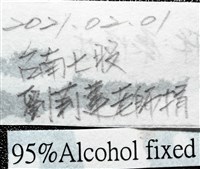 2021.02.01
台南七股
老師捐
95%Alcohol fixed